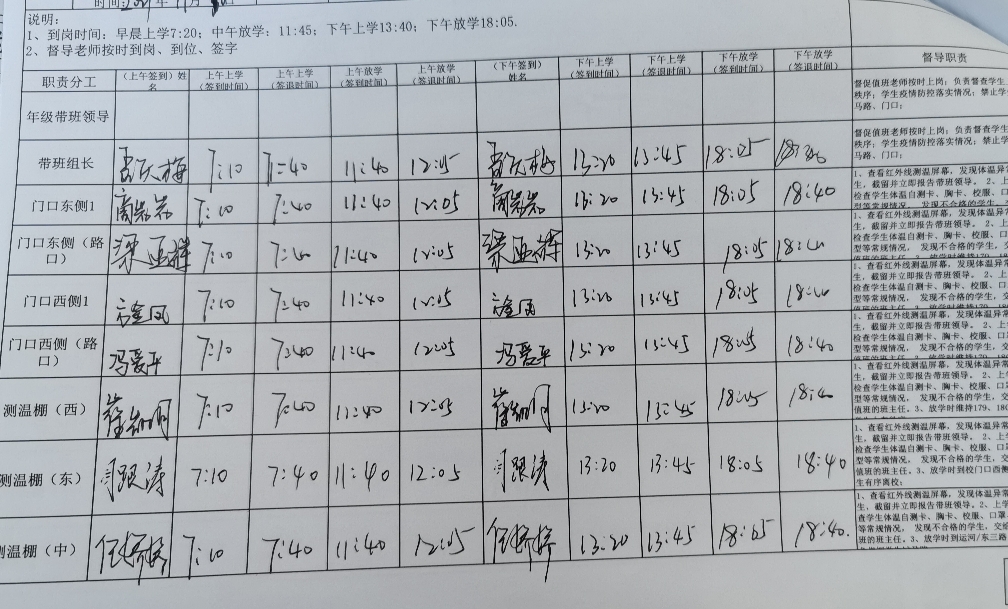 说明:
1、到岗时间：早晨上学7:20；中午放学：11:45；下午上学13:40；下午放学18:05.
2、督导老师按时到岗、到位、签字
职责分工 （上午签到）姓名 上午上学（签到时间） 上午上学（签退时间） 上午放学（签到时间） 上午放学（签退时间） （下午签到）姓名 下午上学（签到时间） 下午上学（签退时间） 下午放学（签到时间） 下午放学（签退时间） 督导职责
年级带班领导 督促值班老师按时上岗；负责督查学生
秩序；学生疫情防控落实情况；禁止学
马路、门口；
带班组长 7:10 7:40 11:40 12:05 13:20 13:45 18:05 督促值班老师按时上岗；负责督查学生
秩序；学生疫情防控落实情况；禁止学
马路、门口；
门口东侧1 7:10 7:40 12:05 13:20 13:45 18:05 18:40 1、查看红外线测温屏幕，发现体温异常
生，截留并立即报告带班领导。 2、上
检查学生体温自测卡、胸卡、校服、口
型等常规情况， 发现不合格的学生，
门口东侧（路口） 7:10 7:40 11:40 12:05 13:20 13:45 18:05 18:40 1、查看红外线测温屏幕，发现体温异常
生，截留并立即报告带班领导。 2、上
检查学生体温自测卡、胸卡、校服、口
型等常规情况， 发现不合格的学生，交
门口西侧1 7:10 7:40 11:40 12:05 13:20 13:45 18:05 18:40 1、查看红外线测温屏幕，发现体温异常
生，截留并立即报告带班领导。 2、上
检查学生体温自测卡、胸卡、校服、口
型等常规情况， 发现不合格的学生，交
门口西侧（路口） 冯爱平 7:10 7:40 11:40 12:05 冯爱平 13:20 13:45 18:05 18:40 1、查看红外线测温屏幕，发现体温异常
生，截留并立即报告带班领导。 2、上
检查学生体温自测卡、胸卡、校服、口
型等常规情况， 发现不合格的学生，交
测温棚（西） 7:10 7:40 11:40 12:05 13:20 13:45 18:05 18:40 1、查看红外线测温屏幕，发现体温异常
生，截留并立即报告带班领导。 2、上学
检查学生体温自测卡、胸卡、校服、口罩
型等常规情况， 发现不合格的学生，交
值班的班主任。3、放学时维持179、180
测温棚（东） 闫跟涛 7:10 7:40 11:40 12:05 闫跟涛 13:20 13:45 18:05 18:40 1、查看红外线测温屏幕，发现体温异常
生，截留并立即报告带班领导。 2、上学
检查学生体温自测卡、胸卡、校服、口罩
型等常规情况， 发现不合格的学生，交
值班的班主任。3、放学时到校门口西侧
生有序离校；
测温棚（中） 任娇娇 7:10 7:40 11:40 12:05 任娇娇 13:20 13:45 18:05 18:40. 1、查看红外线测温屏幕，发现体温异常
生，截留并立即报告带班领导。2、上学
查学生体温自测卡、胸卡、校服、口罩
等常规情况， 发现不合格的学生，交
班的班主任。3、放学时到运河/东三路